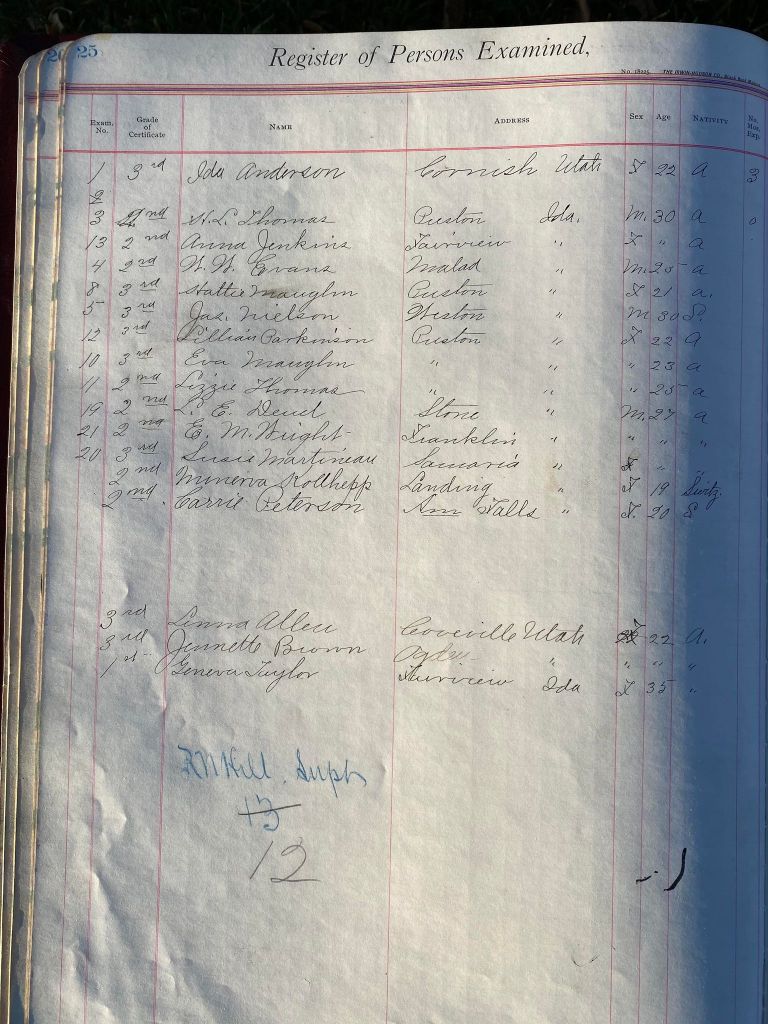 25
Register of Persons Examined,
No. 18225. THE IRWIN-HODSON CO.,
Exam. No. Grade of Certificate NAME ADDRESS Sex Age NATIVITY No. Mos. Exp.
1 3rd Ida Anderson Cornish Utah F 22 A 3
2
3 2nd H. L. Thomas Preston Ida. M. 30 a 0
13 2nd Anna Jenkins Fairview " F " a
4 2nd W. W. Evans Malad " M. 25 a
8 3rd Hattie Maughn Preston " F 21 a.
5 3rd Jas. Nielson Weston " M 30 S.
12 3rd Lillian Parkinson Preston " F 22 a
10 3rd Eva Maughn " " " 23 a
11 2nd Lizzie Thomas " " " 25 a
19 2nd L. E. Deuel Stone " M. 27 a
21 2nd E. M. Wright Franklin " " " "
20 3rd Susie Martineau Samaria " F "
2nd Minerva Kollhepp Landing " F 19 Switz.
2nd Carrie Peterson Am Falls " F. 20 S
3rd Linna Allen Coveville Utah F 22 a.
3rd Jennette Brown Ogden " " " "
1st Geneva Taylor Fairview Ida F 35 "
Hill, Supt
13
12